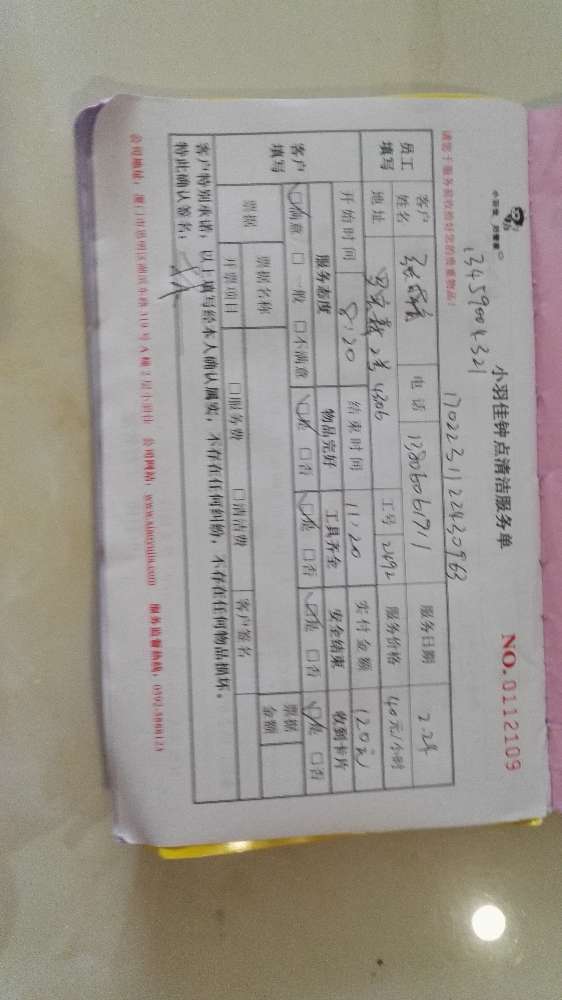 小羽佳 好管家
13459004321
小羽佳钟点清洁服务单
NO.0112109
1702231122430963
请您于服务前收拾好您的贵重物品！
员工填写 客户姓名 电话 13806061711 服务日期 2.24
地址 2号430b 工号 2492 服务价格 40元/小时
开始时间 8:20 结束时间 11:20 实付金额 120元
客户填写 服务态度 物品完好 工具齐全 安全结束 收到卡片
☑满意 □一般 □不满意 ☑是 □否 ☑是 □否 ☑是 □否 ☑是 □否
票据 票据名称 票据金额
开票项目 □服务费 □清洁费 客户签名
客户特别承诺，以上填写经本人确认属实，不存在任何纠纷，不存在任何物品损坏。
特此确认签名：
公司地址：厦门市思明区湖滨东路319号A幢2层小羽佳 公司网站：www.xiaoyujia.com 服务监督热线：0592-5868123